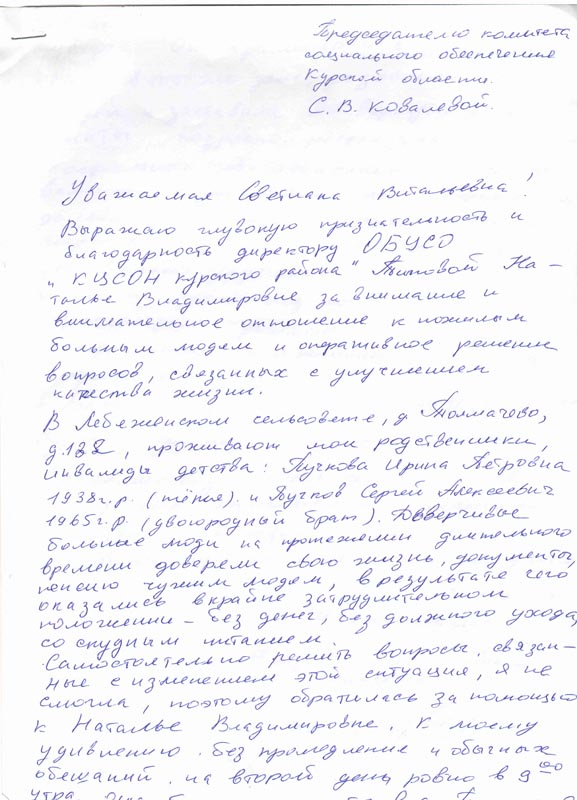 Председателю комитета
социального обеспечения
Курской области.
С. В. Ковалевой.
Уважаемая Светлана Витальевна!
Выражаю глубокую признательность и
благодарность директору ОБУСО
„КЦСОН Курского района" Титовой На-
талье Владимировне за внимание и
внимательное отношение к пожилым
больным людям и оперативное решение
вопросов, связанных с улучшением
качества жизни.
В Лебяженском сельсовете, д Толмачево,
д.122, проживают мои родственники,
инвалиды детства: Пучкова Ирина Петровна
1938г.р. (тётя). и Пучков Сергей Алексеевич
1965г.р. (двоюродный брат). Доверчивые
больные люди на протяжении длительного
времени доверели свою жизнь, документы,
пенсию чужим людям, в результате чего
оказались в крайне затруднительном
положении – без денег, без должного ухода,
со скудным питанием.
Самостоятельно решить вопросы, связан-
ные с изменением этой ситуация, я не
смогла, поэтому обратилась за помощью
к Наталье Владимировне. К моему
удивлению. без промедление и обычных
обещаний. на второй день ровно в 9 00
утра